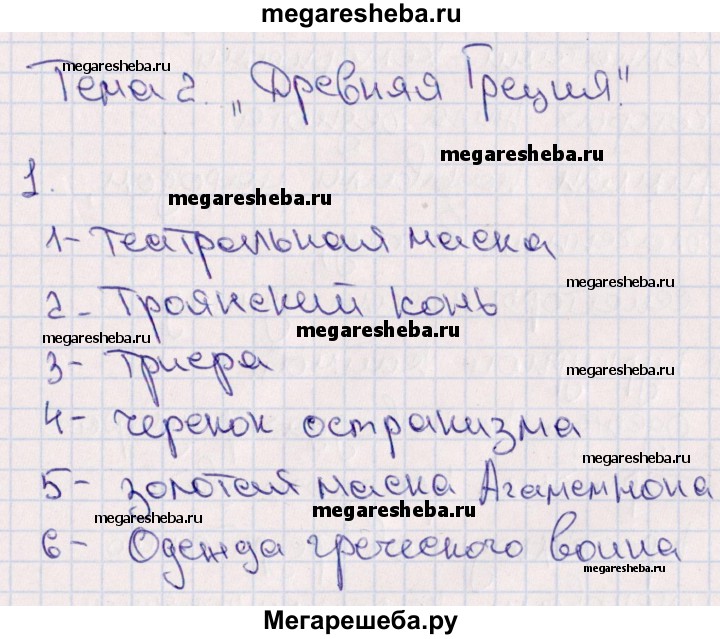 megaresheba.ru
megaresheba.ru
Тема 2. „Древняя Греция".
megaresheba.ru
1.
megaresheba.ru
1- театральная маска
megaresheba.ru
2- Троянский конь
megaresheba.ru
megaresheba.ru
3- триера
megaresheba.ru
4- черепок остракизма
megaresheba.ru
5- золотая маска Агамемнона
megaresheba.ru
megaresheba.ru
6- Одежда греческого воина
megaresheba.ru
Мегарешеба.ру